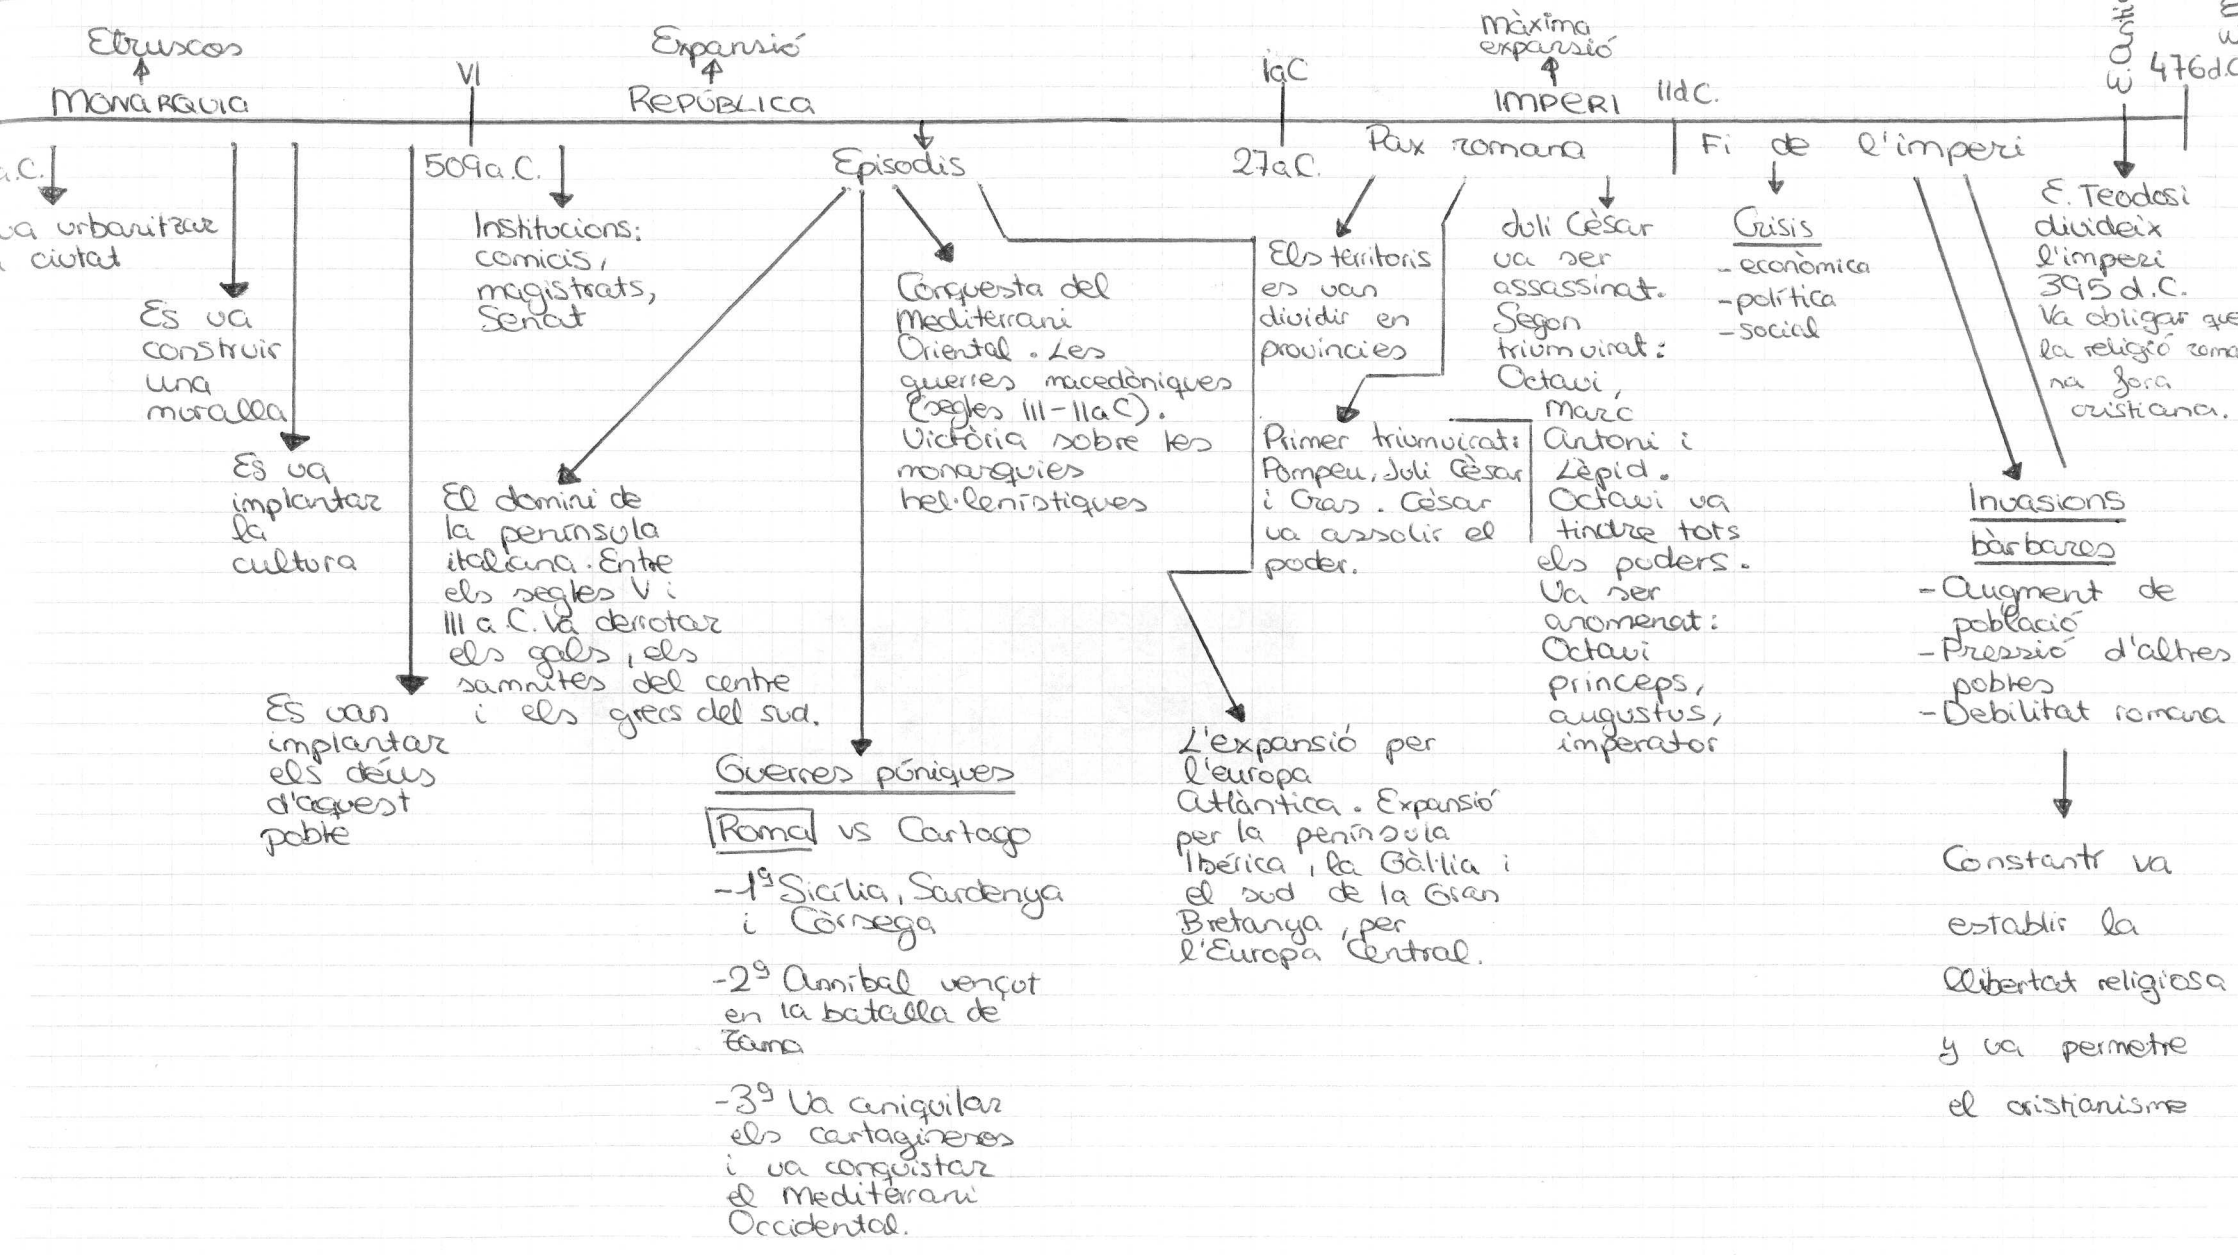 Etruscos
MONARQUIA
VI
Expansió
REPÚBLICA
IaC
màxima
expansió
IMPERI
IIdC.
476d.C
a.C.
va urbanitzar
ciutat
Es va
construir
una
muralla
Es va
implantar
la
cultura
Es van
implantar
els déus
d'aquest
poble
509a.C.
Institucions:
comicis,
magistrats,
Senat
Episodis
El domini de
la península
italiana. Entre
els segles V i
III a.C. Va derrotar
els gals, els
samnites del centre
i els grecs del sud.
Guerres púniques
Roma vs Cartago
-1ª Sicília, Sardenya
i Còrsega
-2ª Anníbal vençut
en la batalla de
Zama
-3ª Va aniquilar
els cartaginesos
i va conquistar
el Mediterrani
Occidental.
Conquesta del
Mediterrani
Oriental. Les
guerres macedòniques
(segles III-IIaC).
Victòria sobre les
monarquies
hel·lenístiques
L'expansió per
l'europa
Atlàntica. Expansió
per la península
Ibérica, la Gàl·lia i
el sud de la Gran
Bretanya, per
l'Europa Central.
27aC.
Pax romana
Els territoris
es van
dividir en
províncies
Primer triumvirat:
Pompeu, Juli Cèsar
i Cras. Cèsar
va assolir el
poder.
Juli Cèsar
va ser
assassinat.
Segon
triumvirat:
Octavi,
Marc
Antoni i
Lèpid.
Octavi va
tindre tots
els poders.
Va ser
anomenat:
Octavi
princeps,
augustus,
imperator
Fi de l'imperi
Crisis
- econòmica
- política
- social
Invasions
bàrbares
- Augment de
població
- Pressió d'altres
pobles
- Debilitat romana
Constantí va
establir la
llibertat religiosa
y va permetre
el cristianisme
E. Teodosi
divideix
l'imperi
395 d.C.
Va obligar que
la religió roma
na fora
cristiana.